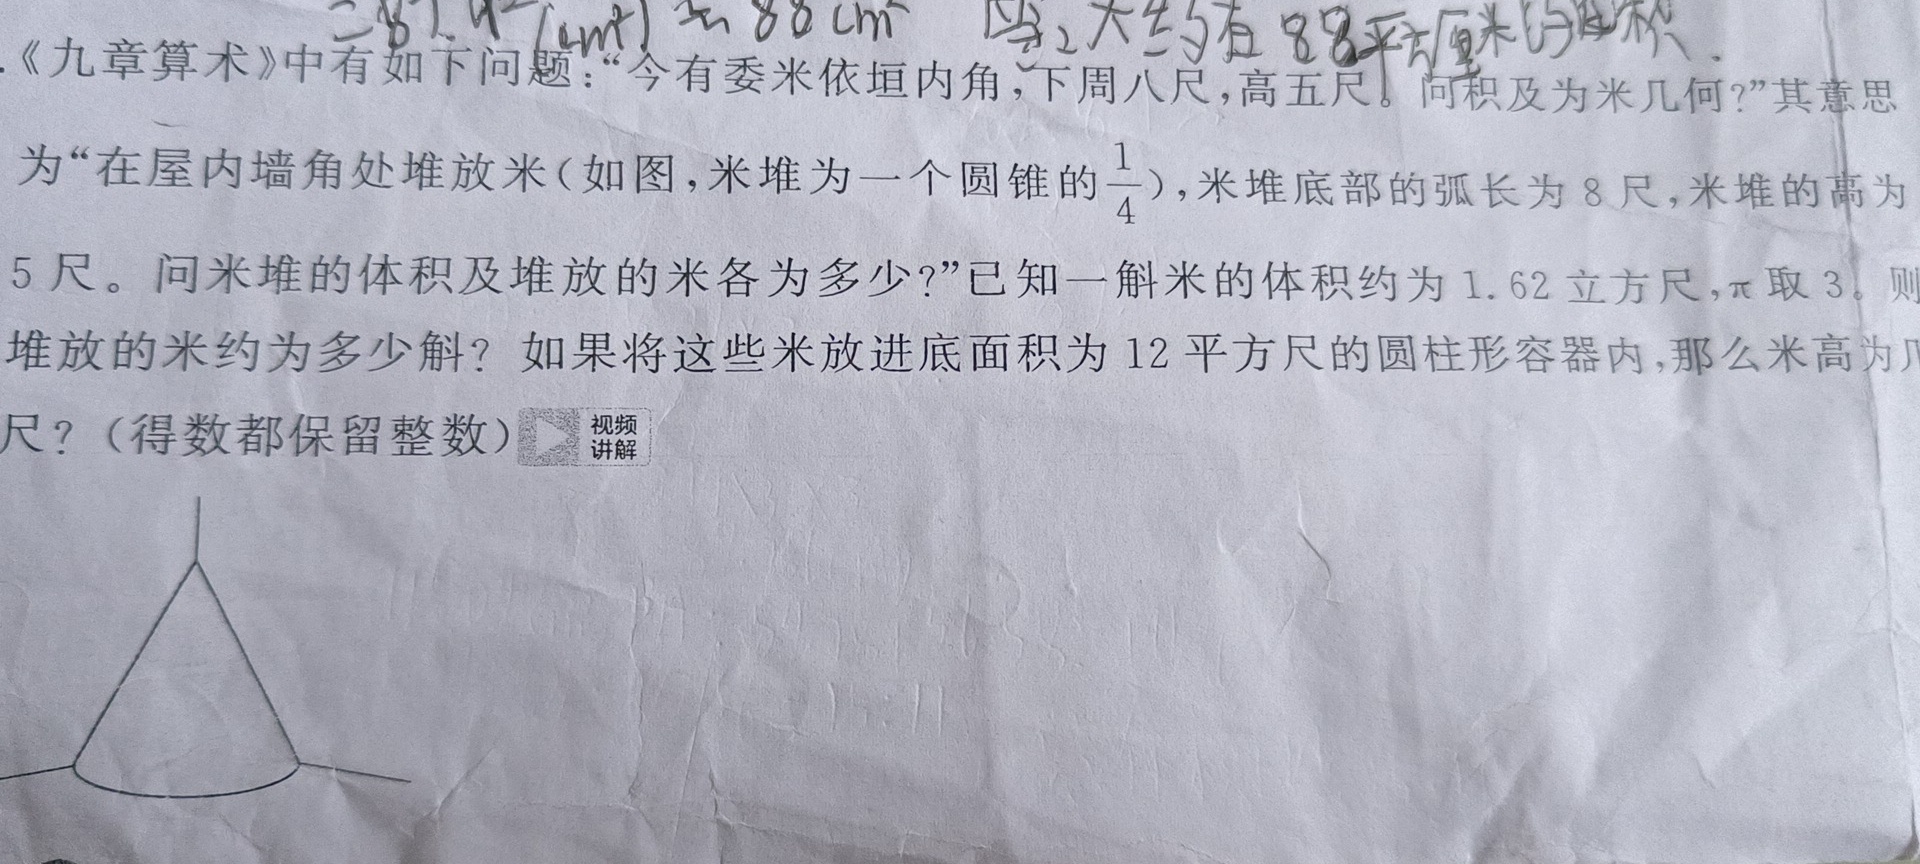 =87.92(cm²)≈88cm² 答:大约有88平方厘米的面积.
.《九章算术》中有如下问题:“今有委米依垣内角,下周八尺,高五尺。问积及为米几何?”其意思
为“在屋内墙角处堆放米(如图,米堆为一个圆锥的1/4),米堆底部的弧长为8尺,米堆的高为
5尺。问米堆的体积及堆放的米各为多少?”已知一斛米的体积约为1.62立方尺,π取3。则
堆放的米约为多少斛?如果将这些米放进底面积为12平方尺的圆柱形容器内,那么米高为几
尺?(得数都保留整数)
视频
讲解